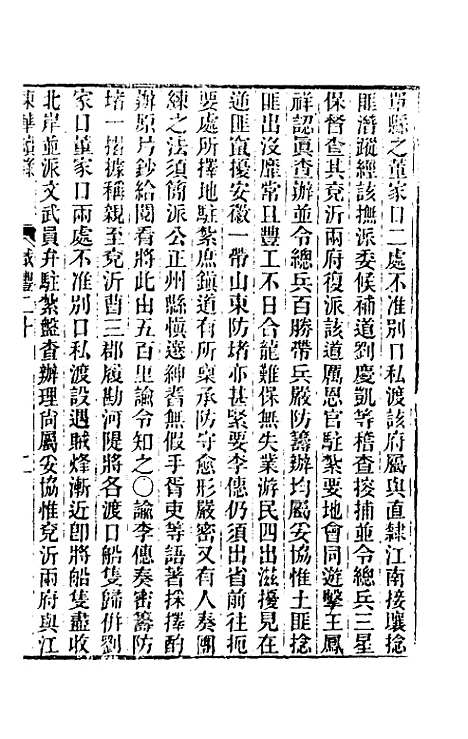 單縣之董家口二處不准別口私渡該府屬與直隸江南接壤捻
匪潛蹤經該撫派委候補道劉慶凱等稽查搜捕並令總兵三星
保督查其兖沂兩府復派該道厲恩官駐紮要地會同遊擊王鳳
祥認眞查辦並令總兵百勝帶兵嚴防籌辦均屬妥協惟土匪捻
匪出沒靡常且豐工不日合龍難保無失業游民四出滋擾見在
通匪竄擾安徽一帶山東防堵亦甚緊要李僡仍須出省前往扼
要處所擇地駐紮庶鎮道有所稟承防守愈形嚴密又有人奏團
練之法須簡派公正州縣愼選紳耆無假手胥吏等語著採擇酌
辦原片鈔給閱看將此由五百里諭令知之〇諭李僡奏密籌防
堵一摺據稱親至兖沂曹三郡履勘河隄將各渡口船隻歸併劉
家口董家口兩處不准別口私渡設遇賊烽漸近卽將船隻盡收
北岸並派文武員弁駐紮盤查辦理尙屬妥協惟兖沂兩府與江
東華續錄 咸豐二十